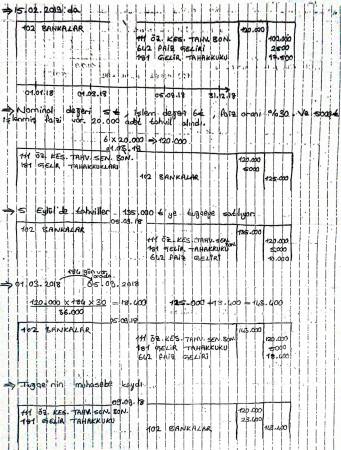 → 15.02.2019'da
102 BANKALAR 120.000
111 ÖZ. KES. TAHV. BON. 100.000
642 FAİZ GELİRİ 2500
181 GELİR TAHAKKUKU 17.500
01.01.18 01.03.18 05.09.18 31.12.18
→ Nominal değeri 5 ₺, işlem değeri 6 ₺, faiz oranı %30. Ve 5000 ₺
işlenmiş faizi var. 20.000 adet tahvil alındı.
6 x 20.000 → 120.000
01.03.18
111 ÖZ. KES. TAHV. SEN. BON. 120.000
181 GELİR TAHAKKUKLARI 5000
102 BANKALAR 125.000
→ 5 Eylül'de tahviller 135.000 ₺'ye tuğçeye satılıyor.
05.09.18
102 BANKALAR 135.000
111 ÖZ. KES. TAHV. SEN. BON. 120.000
181 GELİR TAHAKKUKU 5.000
642 FAİZ GELİRİ 10.000
184 gün var
→ 01.03.2018 05.09.2018
120.000 x 184 x 30 = 18.400 125.000 + 18.400 = 143.400
36.000
05.09.18
102 BANKALAR 143.400
111 ÖZ. KES. TAHV. SEN. BON. 120.000
181 GELİR TAHAKKUKU 5000
642 FAİZ GELİRİ 18.400
→ Tuğçe'nin muhasebe kaydı
05.09.18
111 ÖZ. KES. TAHV. SEN. BON. 120.000
181 GELİR TAHAKKUKU 23.400
102 BANKALAR 143.400